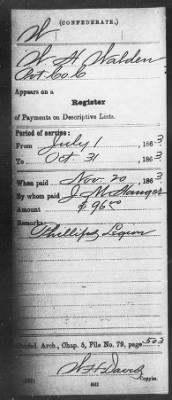 (CONFEDERATE.)
W
W. H. Walden
Pvt Co C
Appears on a
Register
of Payments on Descriptive Lists.
Period of service:
From July 1, 1863
To Oct 31, 1863
When paid Nov. 20, 1863
By whom paid J. M. Hanger
Amount $ 96 50
Remarks:
Phillips Legion
Confed. Arch., Chap. 5, File No. 79, page 503
W H Davis
Copyist.